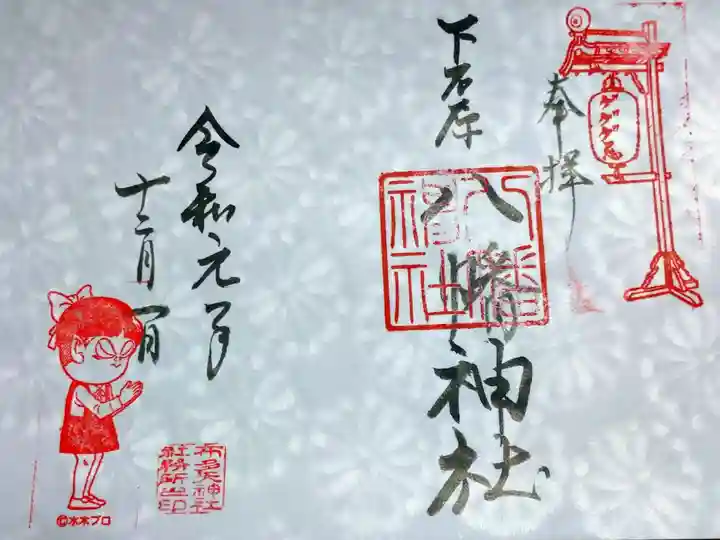 奉拝
ゲゲゲ忌
下石原
八幡神社
八幡
神社
令和元年
十二月一日
布多天神社
社務所出印
©水木プロ